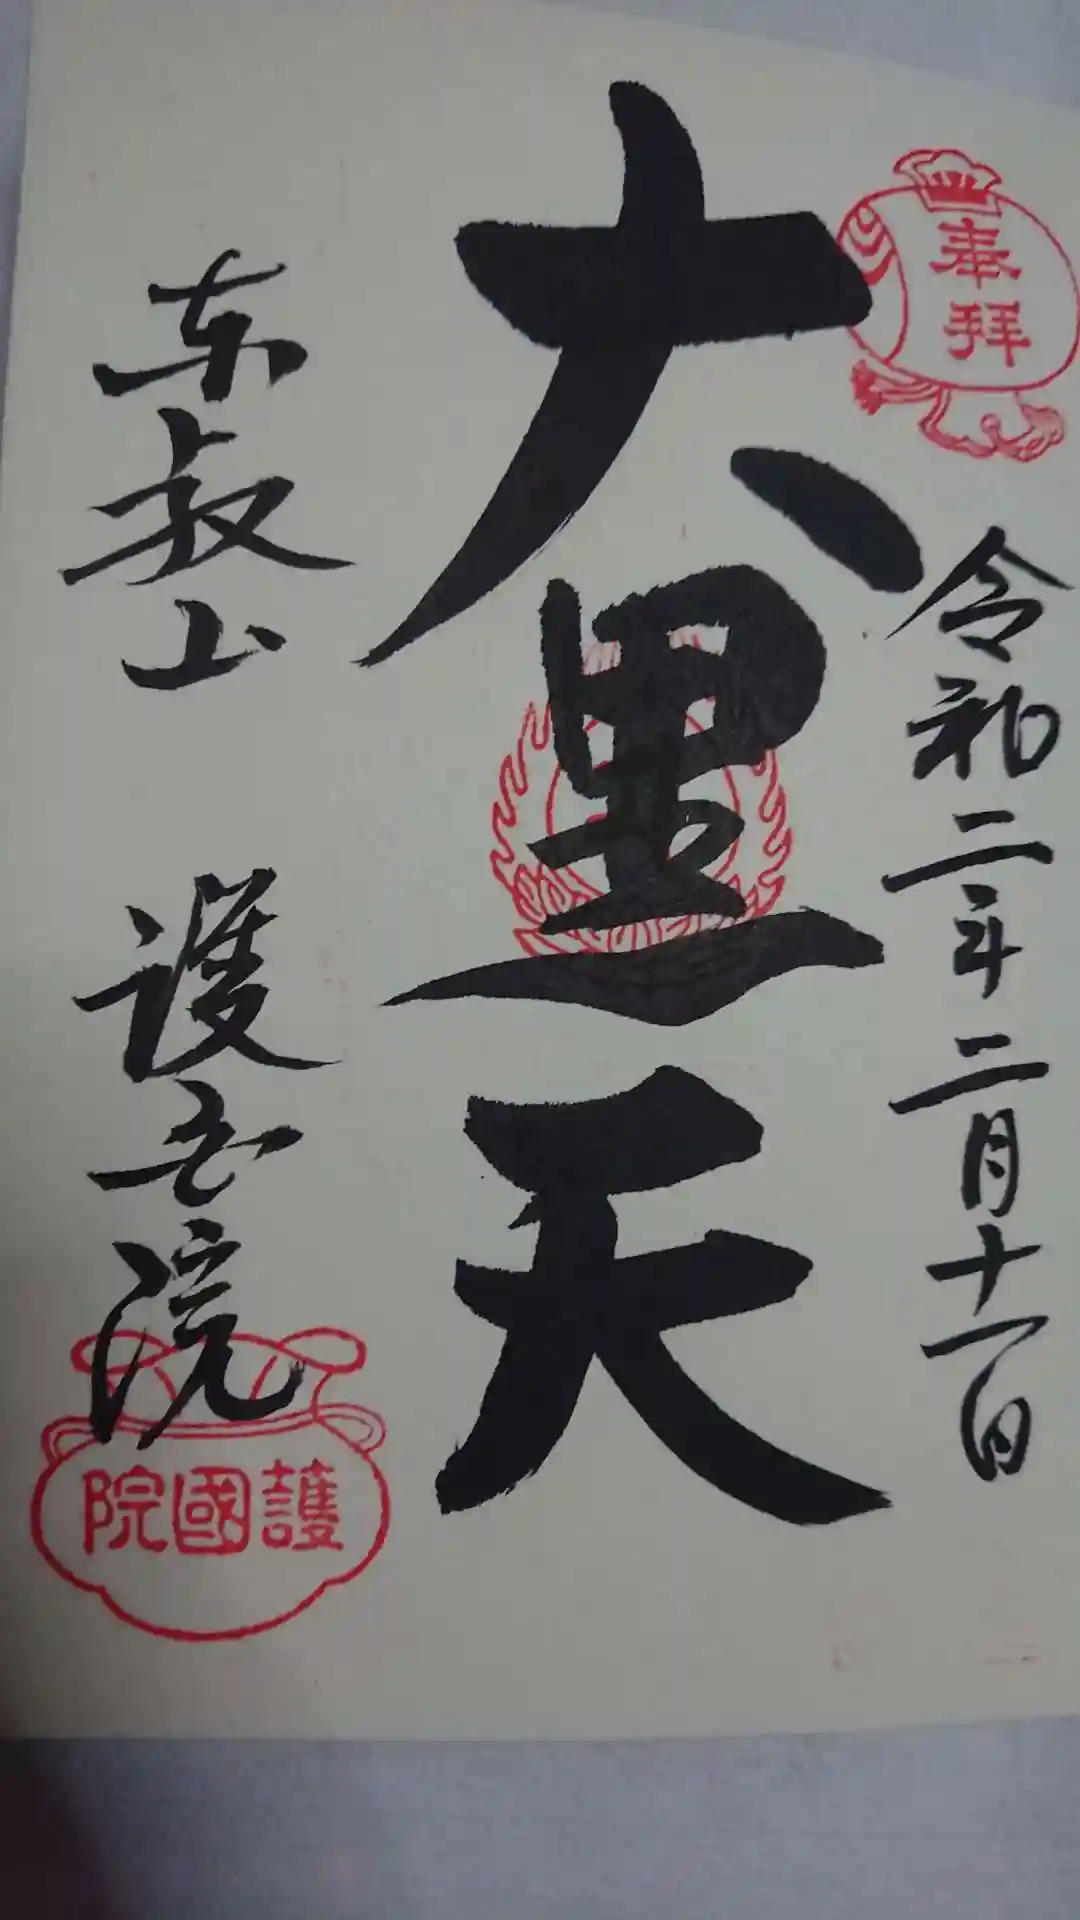 奉拝
令和二年二月十一日
大黒天
东叡山 護国院
護國院